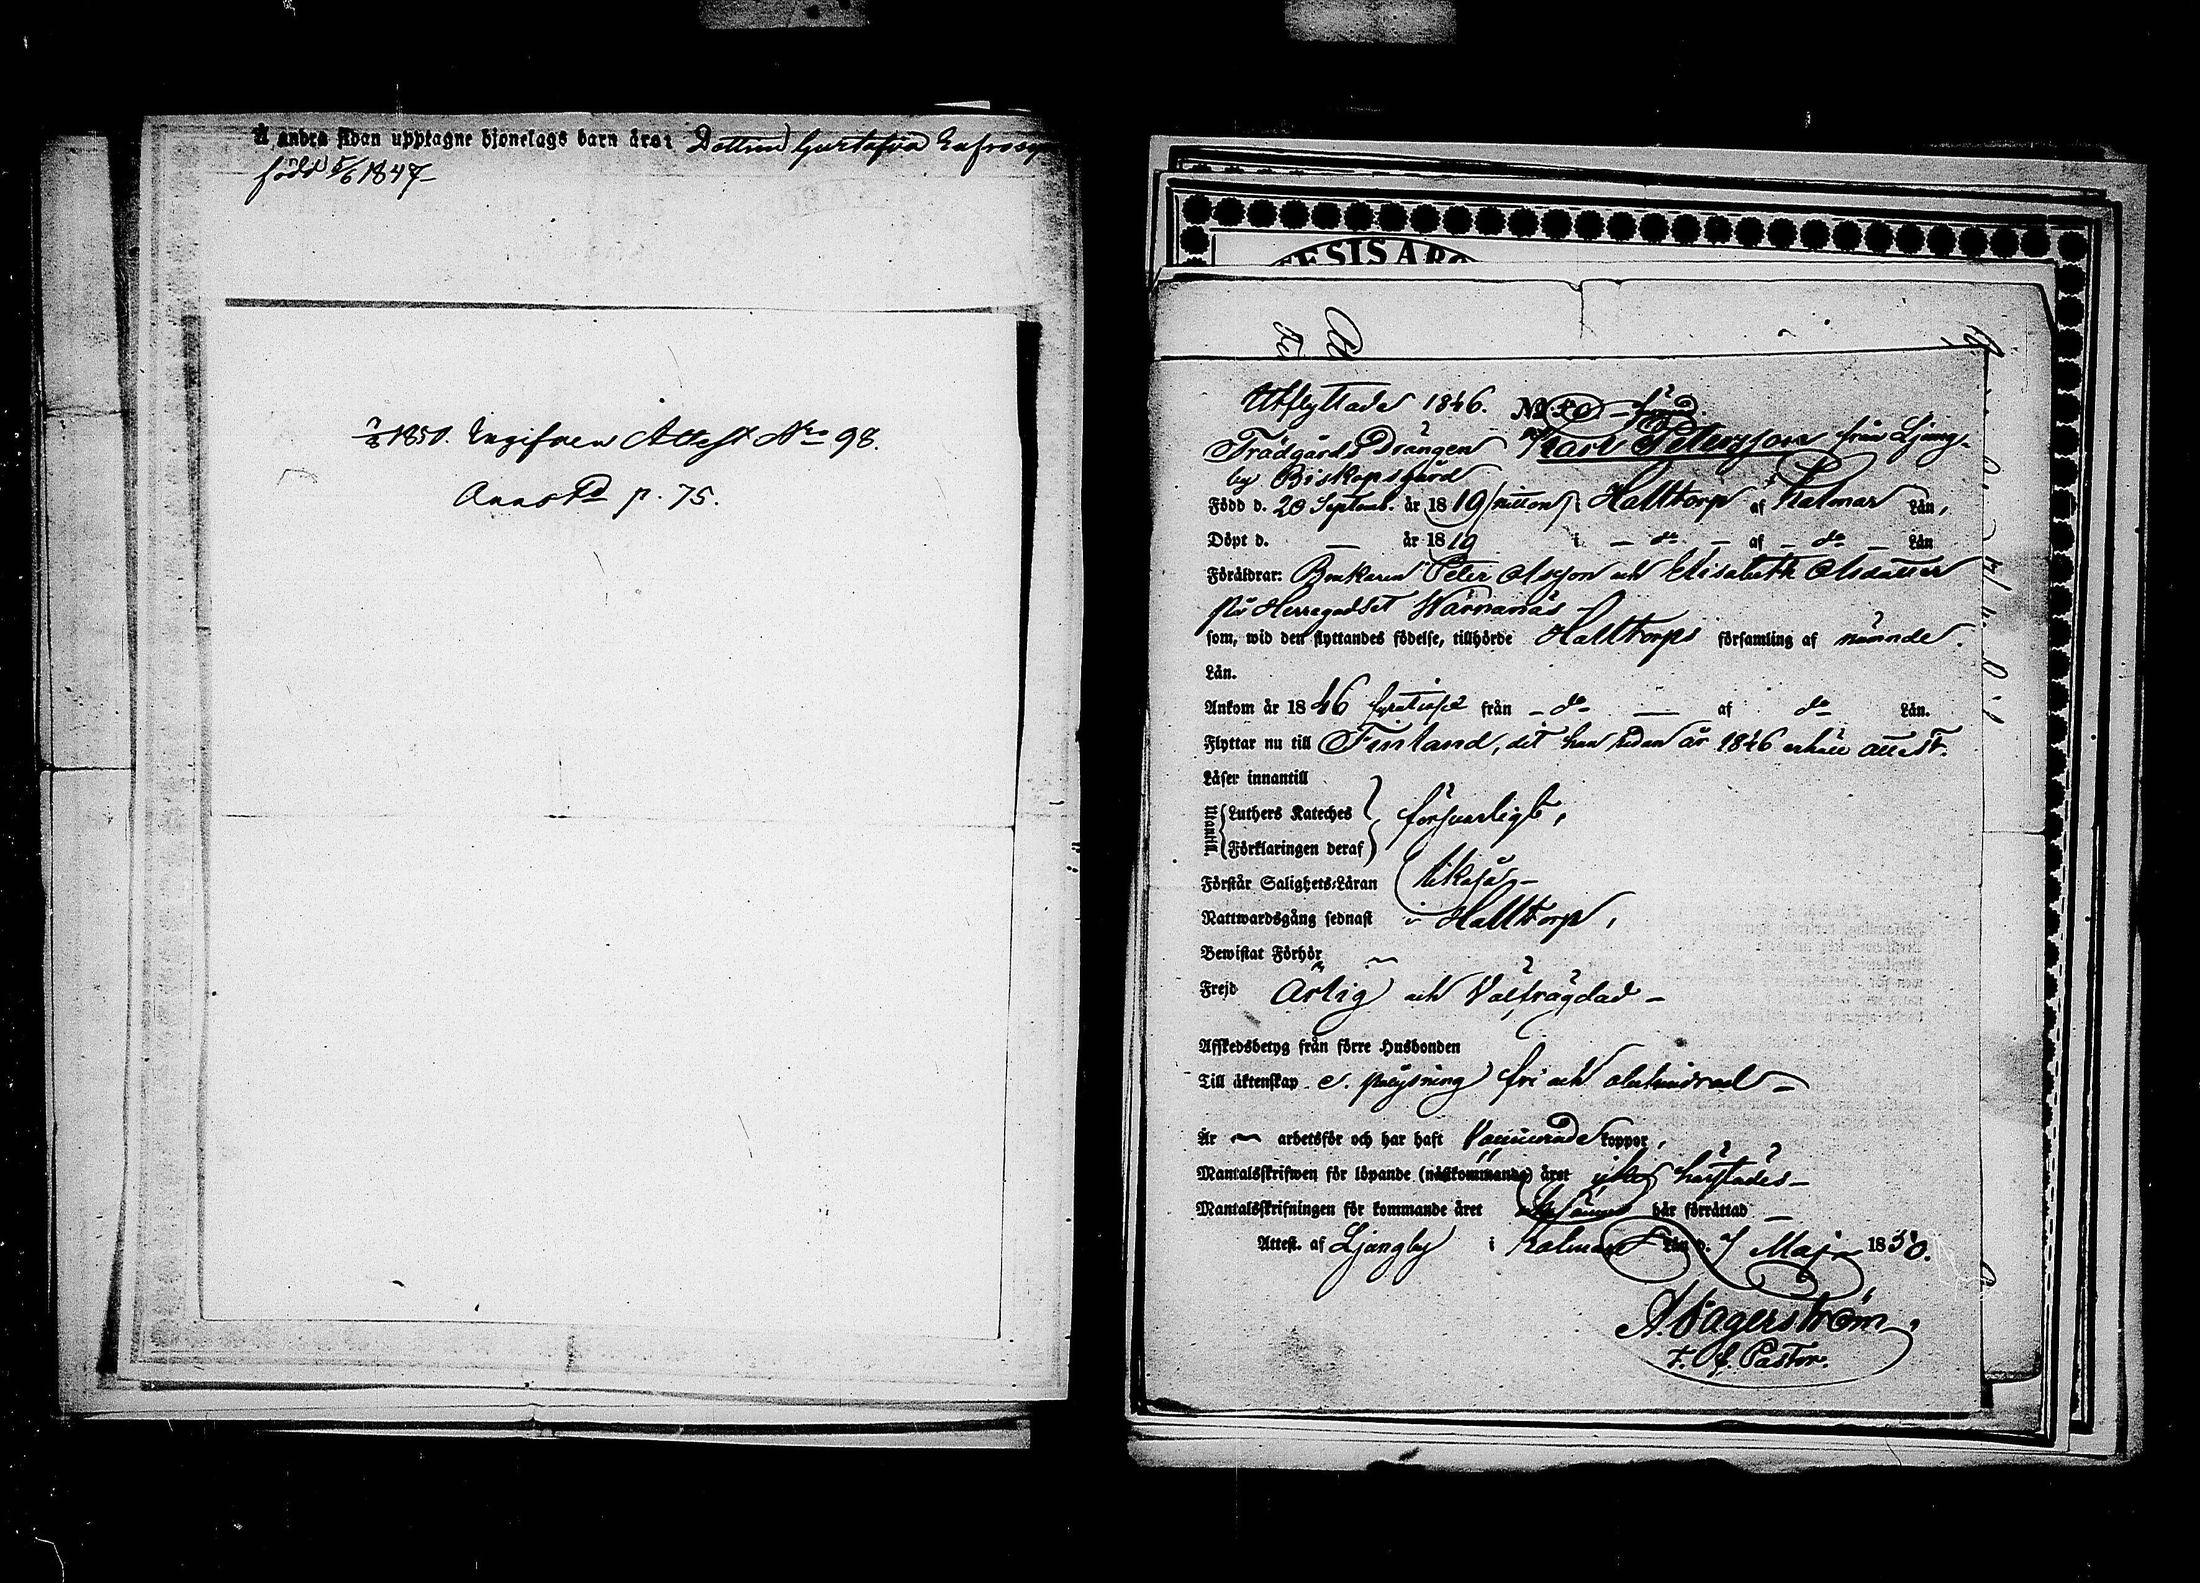 Å andra sidan upptagne hjonelags barn äro: Dottren Gustafva Eufrosyn
född 5/6 1847-
7/8 1850. Engifven Attest No 98.
Annot p. 75.
ESIS ARO
Utflyttade 1846. No 40
Trädgårds Drängen Karl Petersson från Ljung-
by Biskopsgård
Född d. 20 Septemb. år 1819 /nitton/ i Halltorp af Kalmar Län,
Döpt d. — år 1819 i — do — af — do — Län
Föräldrar: Bonkaren Peter Olsson och Elisabeth Olsdotter
på Herregodset Wärnanäs
som, wid den flyttandes födelse, tillhörde Halltorps församling af nämnde
Län.
Ankom år 1846 fyratiosex från — do — af do Län.
Flyttar nu till Finland, dit han redan år 1846 erhöll attest.
Läser innantill
Utantill. Luthers Kateches försvarligt,
Förklaringen deraf
Förstår Salighets-Läran likaså —
Nattwardsgång sednast i Halltorp,
Bewistat Förhör —
Frejd Ärlig och Välfrägdad —
Afskedsbetyg från förre Husbonden
Till äktenskap e. pålysning fri och obehindrad —
Är — arbetsför och har haft Vaccinerade koppor,
Mantalsskrifwen för löpande (nästkommande) året icke härstädes —
Mantalsskrifningen för kommande året är här förrättad —
Attest. af Ljungby i Kalmar Län d. 7 Maji 1850.
A. Fagerström,
T. f. Pastor.